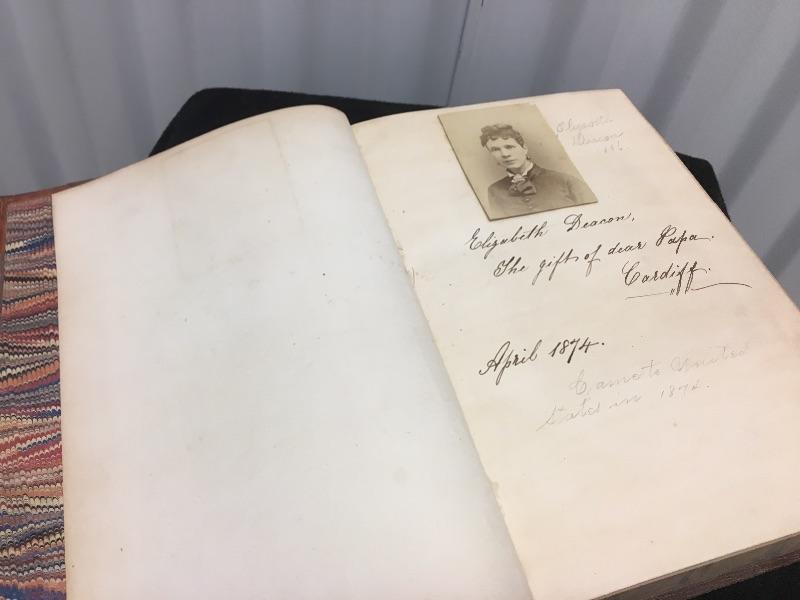 Elizabeth
Deacon
Elizabeth Deacon,
The gift of dear Papa.
Cardiff.
April 1874.
Came to United
States in 1874.